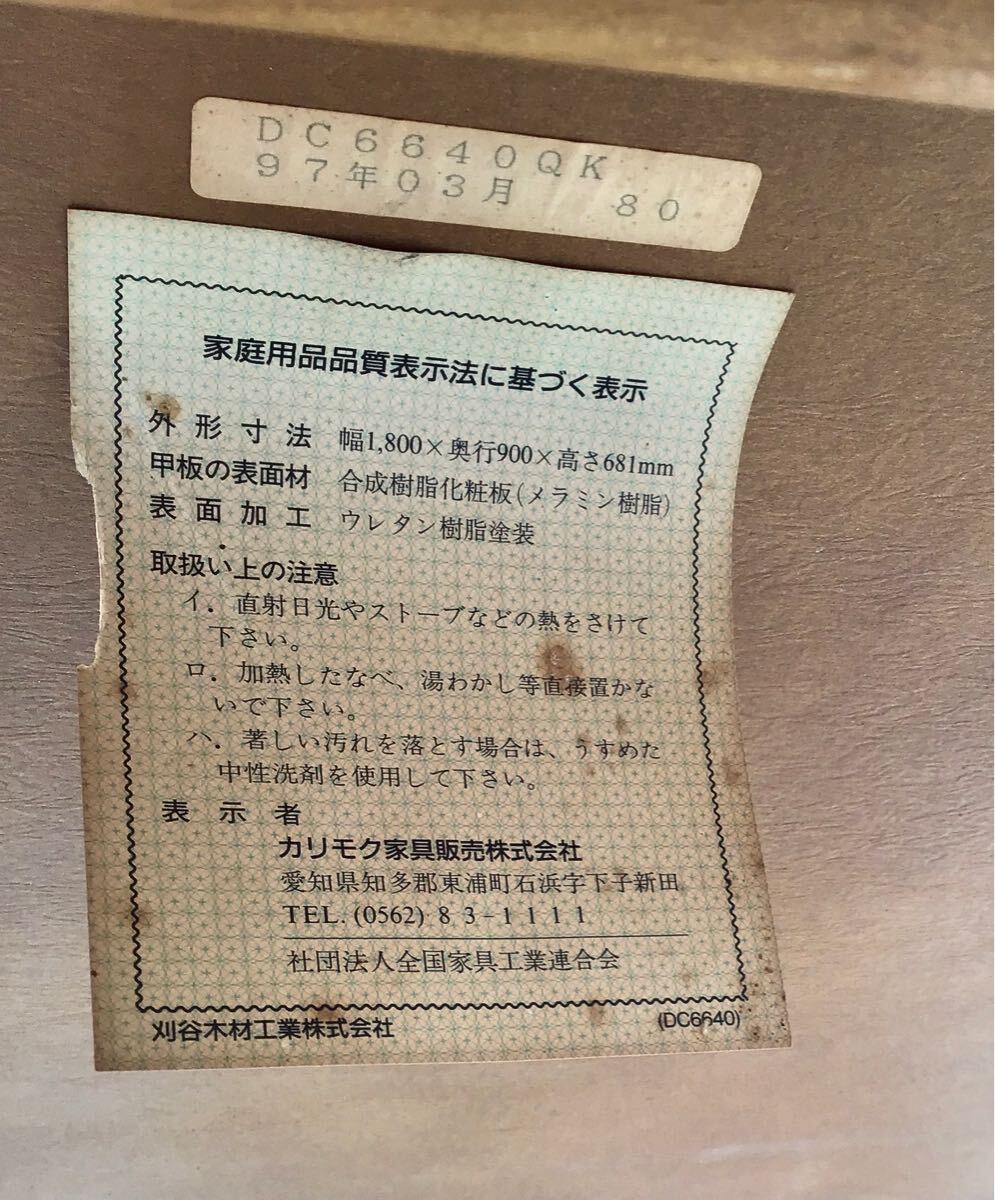 DC6640QK
97年03月 80
家庭用品品質表示法に基づく表示
外形寸法 幅1,800×奥行900×高さ681mm
甲板の表面材 合成樹脂化粧板(メラミン樹脂)
表面加工 ウレタン樹脂塗装
取扱い上の注意
イ. 直射日光やストーブなどの熱をさけて
下さい。
ロ. 加熱したなべ、湯わかし等直接置かな
いで下さい。
ハ. 著しい汚れを落とす場合は、うすめた
中性洗剤を使用して下さい。
表示者
カリモク家具販売株式会社
愛知県知多郡東浦町石浜字下子新田
TEL. (0562) 83-1111
社団法人全国家具工業連合会
刈谷木材工業株式会社 (DC6640)